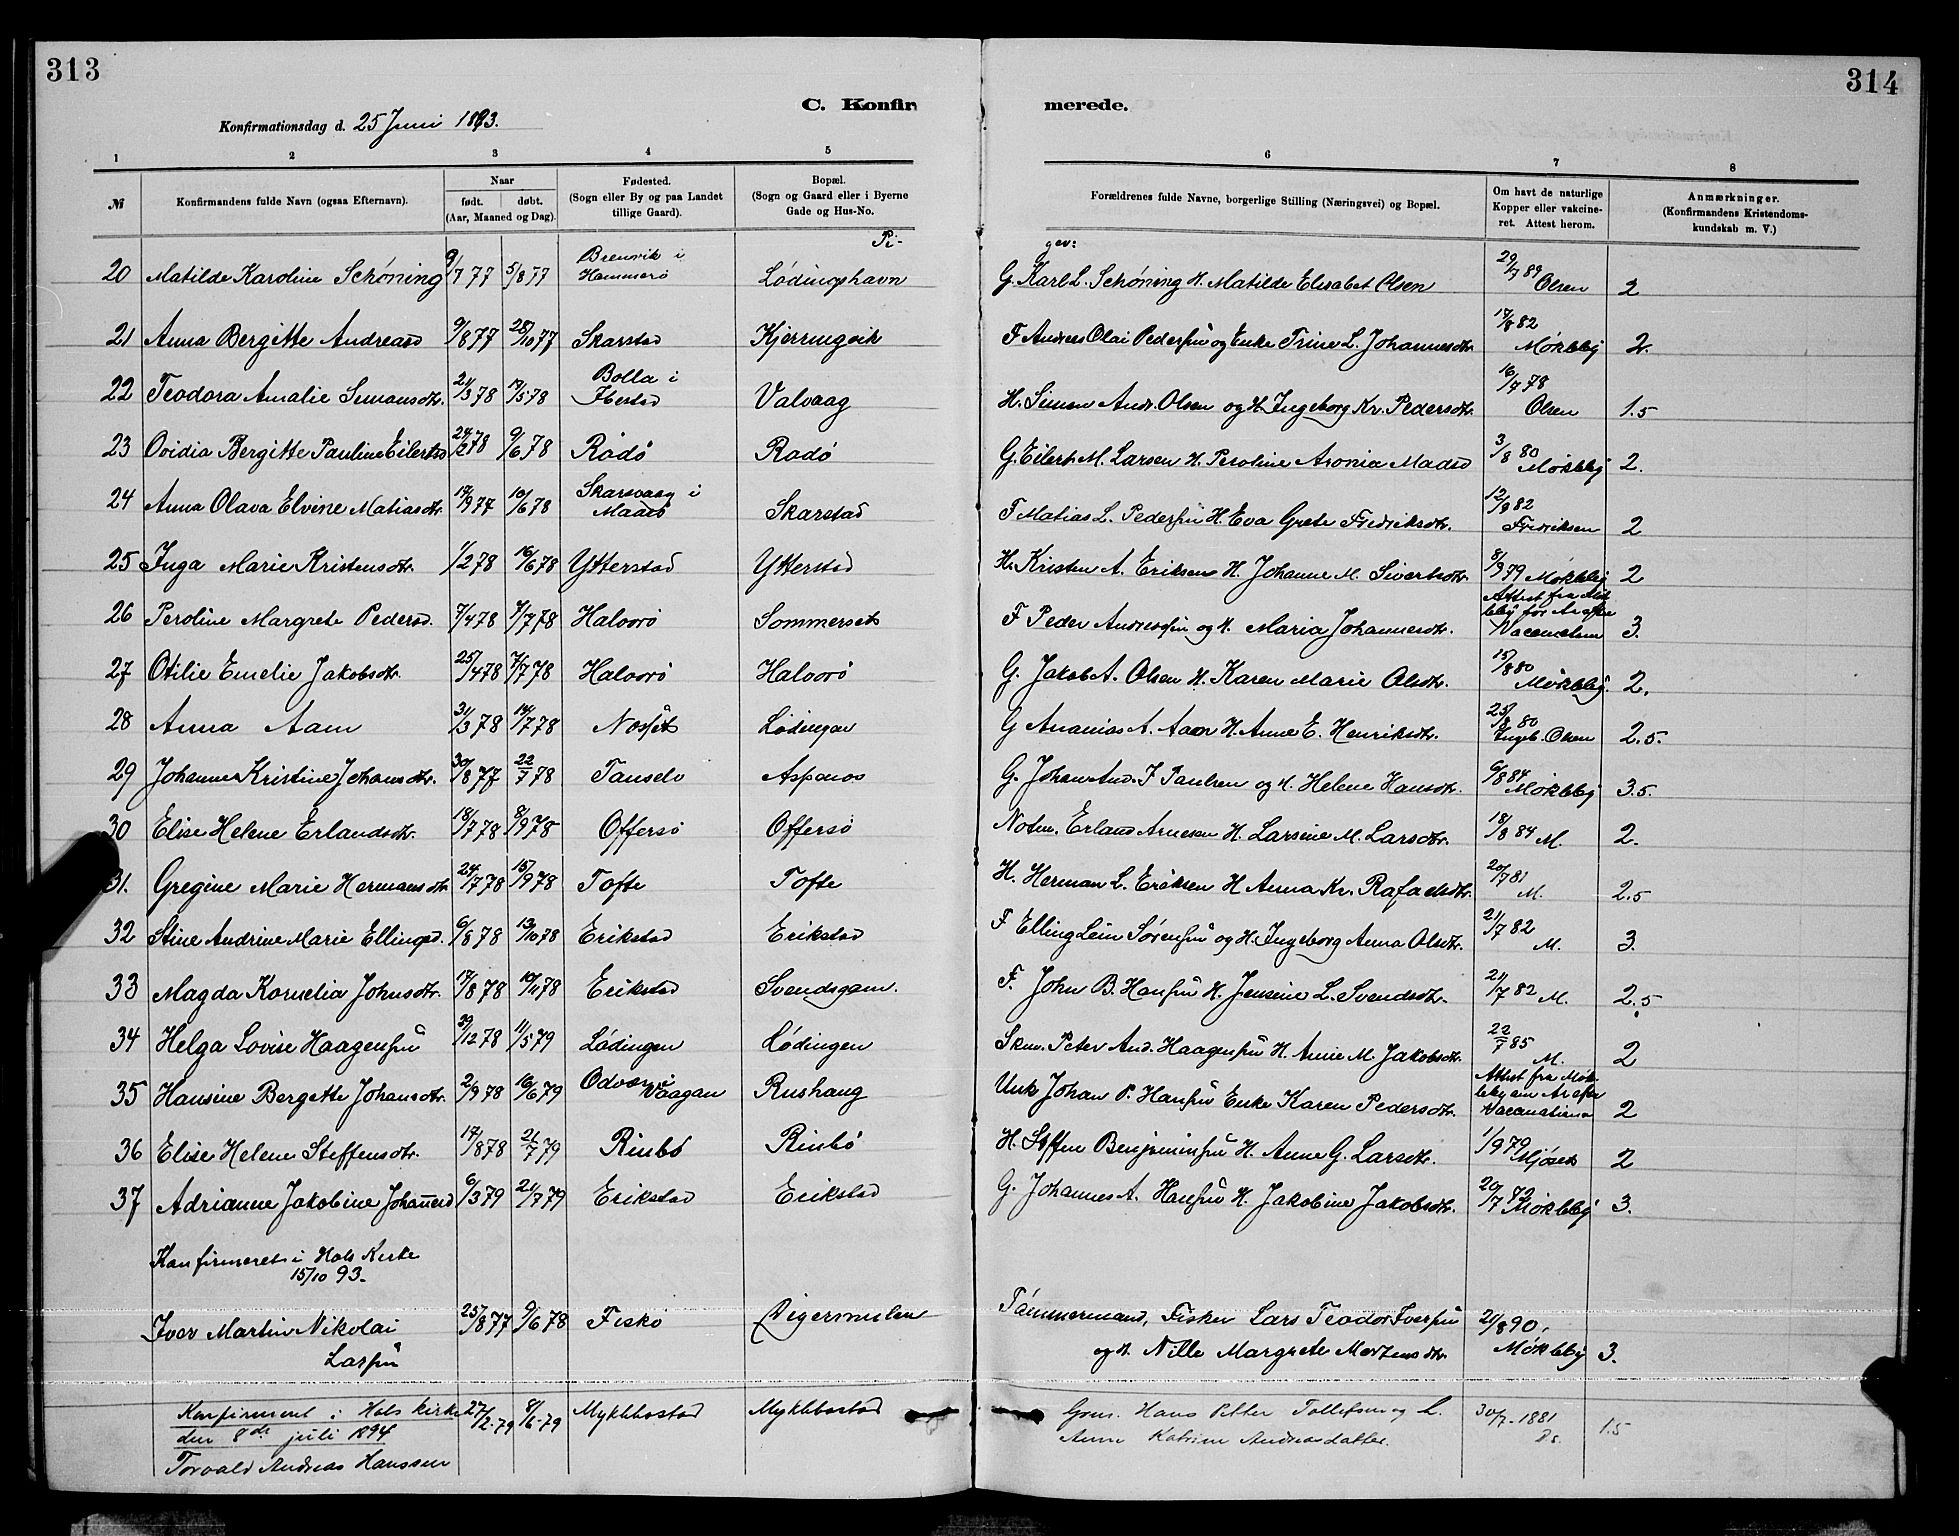 313
314
C. Konfir
merede.
Konfirmationsdag d. 25 Juni 1893.
1 2 3 4 5 6 7 8
№
Konfirmandens fulde Navn (ogsaa Efternavn).
Naar
født. døbt.
(Aar, Maaned og Dag).
Fødested.
(Sogn eller By og paa Landet
tillige Gaard).
Bopæl.
(Sogn og Gaard eller i Byerne
Gade og Hus-No.
Forældrenes fulde Navne, borgerlige Stilling (Næringsvei) og Bopæl.
Om havt de naturlige
Kopper eller vakcine-
ret. Attest herom.
Anmærkninger.
(Konfirmandens Kristendoms-
kundskab m. V.)
20 Matilde Karoline Schöning 9/7 77 5/8 77 Brenvik i Hammerø Lødingshavn G. Karl L. Schöning H. Matilde Elisabet Olsen 29/7 89 Olsen 2
21 Anna Bergitte Andreasd 9/8 77 28/10 77 Skarstad Kjerringvik F Andreas Olai Pedersen og Enke Trine L. Johannesdtr. 17/8 82 Møkleby 2.
22 Teodora Amalie Simonsdtr. 21/3 78 19/5 78 Bolla i Ibestad Valvaag H. Simon Andr. Olsen og H. Ingeborg Kr. Pedersdtr. 16/7 78 Olsen 1.5
23 Ovidia Bergitte Pauline Eilertsd 24/2 78 9/6 78 Rødø Rødø G. Eilert M. Larsen H. Peroline Aronia Madsd 3/8 80 Møkleby 2.
24 Anna Olava Elvine Matiasdtr. 19/9 77 10/6 78 Skarsvaag i Maasø Skarstad F Matias L. Pedersen H. Eva Grete Fredriksdtr. 12/9 82 Fredriksen 2
25 Inga Marie Kristensdtr. 1/2 78 16/6 78 Ytterstad Ytterstad H. Kristen A. Eriksen H. Johanne M. Sivertsdtr. 8/9 79 Møkleby 2
26 Peroline Margrete Pedersd. 7/4 78 7/7 78 Halvorø Sommerset F Peder Andreassen og H. Maria Johannesdtr. 3.
27 Otilie Emelie Jakobsdtr. 25/4 78 7/7 78 Halvorø Halvorø G. Jakob A. Olsen H. Karen Marie Olsdtr. 15/8 80 Møkleby. 2.
28 Anna Aam 31/3 78 14/7 78 Lødingen G Ananias A. Aam H. Anne E. Henriksdtr. 25/8 80 Ingeb. Olsen 2.5.
29 Johanna Kristine Johansdtr. 30/8 77 22/7 78 Tanselv G. Johan And. J Paulsen og H. Helene Hansdtr. 6/8 84 Møkleby 3.5.
30 Elise Helene Erlandsdtr. 18/7 78 8/9 78 Offersø Offersø Notm. Erland Arnesen H. Larsine M. Larsdtr. 18/8 84 M. 2.
31. Gregine Marie Hermansdtr 24/7 78 15/9 78 Tofte Tofte H. Herman L. Eriksen H Anna Kr. Rafaelsdtr. 20/7 81 M. 2.5
32 Stine Andrine Marie Ellingsd. 6/8 78 13/10 78 Erikstad Erikstad F Elling Lein Sørensen og H. Ingeborg Anna Olsdtr. 21/7 82 M. 3.
33 Magda Kornelia Johnsdtr. 17/8 78 10/11 78 Erikstad Svendsgam. F. John B. Hansen H. Jensine L. Svendsdtr. 21/7 82 M. 2.5
34 Helga Lovise Haagensen 29/12 78 11/5 79 Lødingen Lødingen Skm. Peter And. Haagensen H. Anne M. Jakobsdtr. 22/7 85 M. 2
35 Hansine Bergette Johansdtr. 2/9 78 16/6 79 Odvær i Vaagan Rushaug Unk Johan P. Hansen Enke Karen Pedersdtr. 2
36 Elise Helene Steffensdtr. 17/8 78 21/7 79 Rinbø Rinbø H. Steffen Benjaminsen H. Anne G. Larsdtr. 1/9 79 Mjøset 2
37 Adrianne Jakobine Johannesd 6/3 79 21/7 79 Erikstad Erikstad G. Johannes A. Hansen H. Jakobine Jakobsdtr. 20/7 Møkleby 3.
Konfirmeret i Hols Kirke
15/10 93.
Iver Martin Nikolai 25/8 77 9/6 78 Fiskø Digermulen Tømmermand, Fisker Lars Teodor Iversen 21/8 90.
Larsen og H. Nille Margrete Mortensdtr. Møkleby 3.
Konfirmeret i Hols kirke 27/12-79 8/6-79 Myklebostad Myklebostad Grm. Hans Petter Tollefsen og L. 30/7-1881 1.5
den 8de juli 1894 Anne Katrine Andreasdatter. Ds.
Torvald Andreas Hanssen